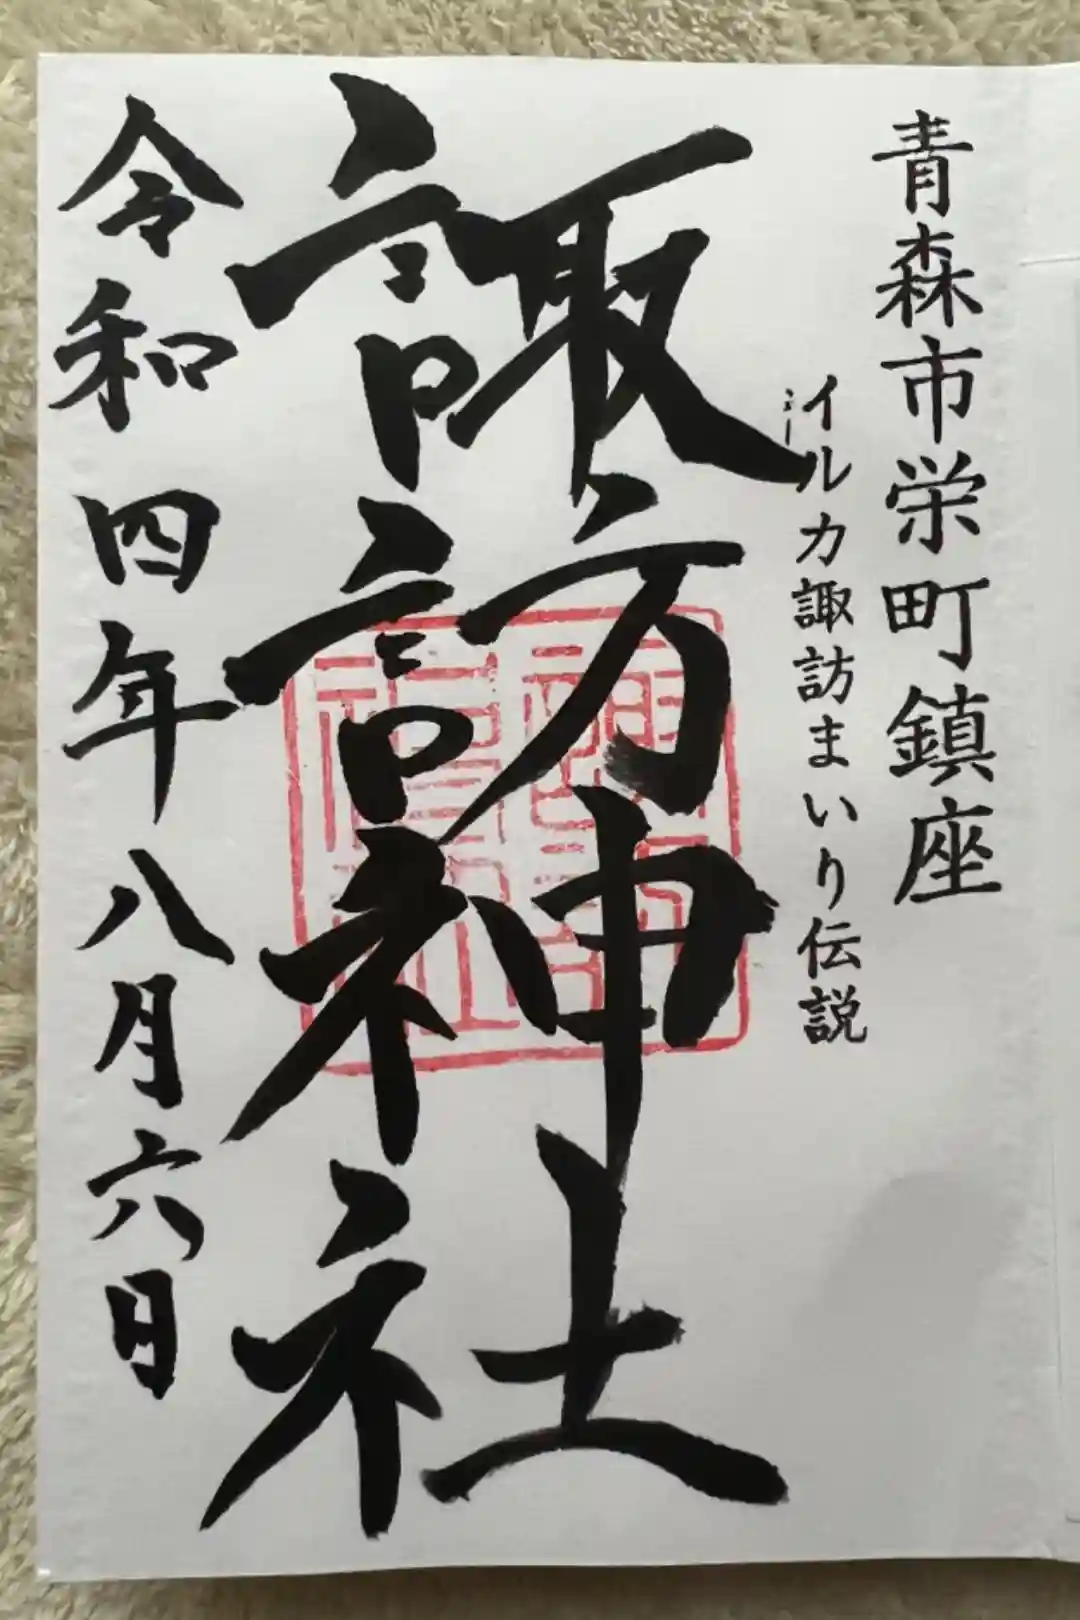 青森市栄町鎮座
イルカ諏訪まいり伝説
諏訪神社
令和四年八月六日